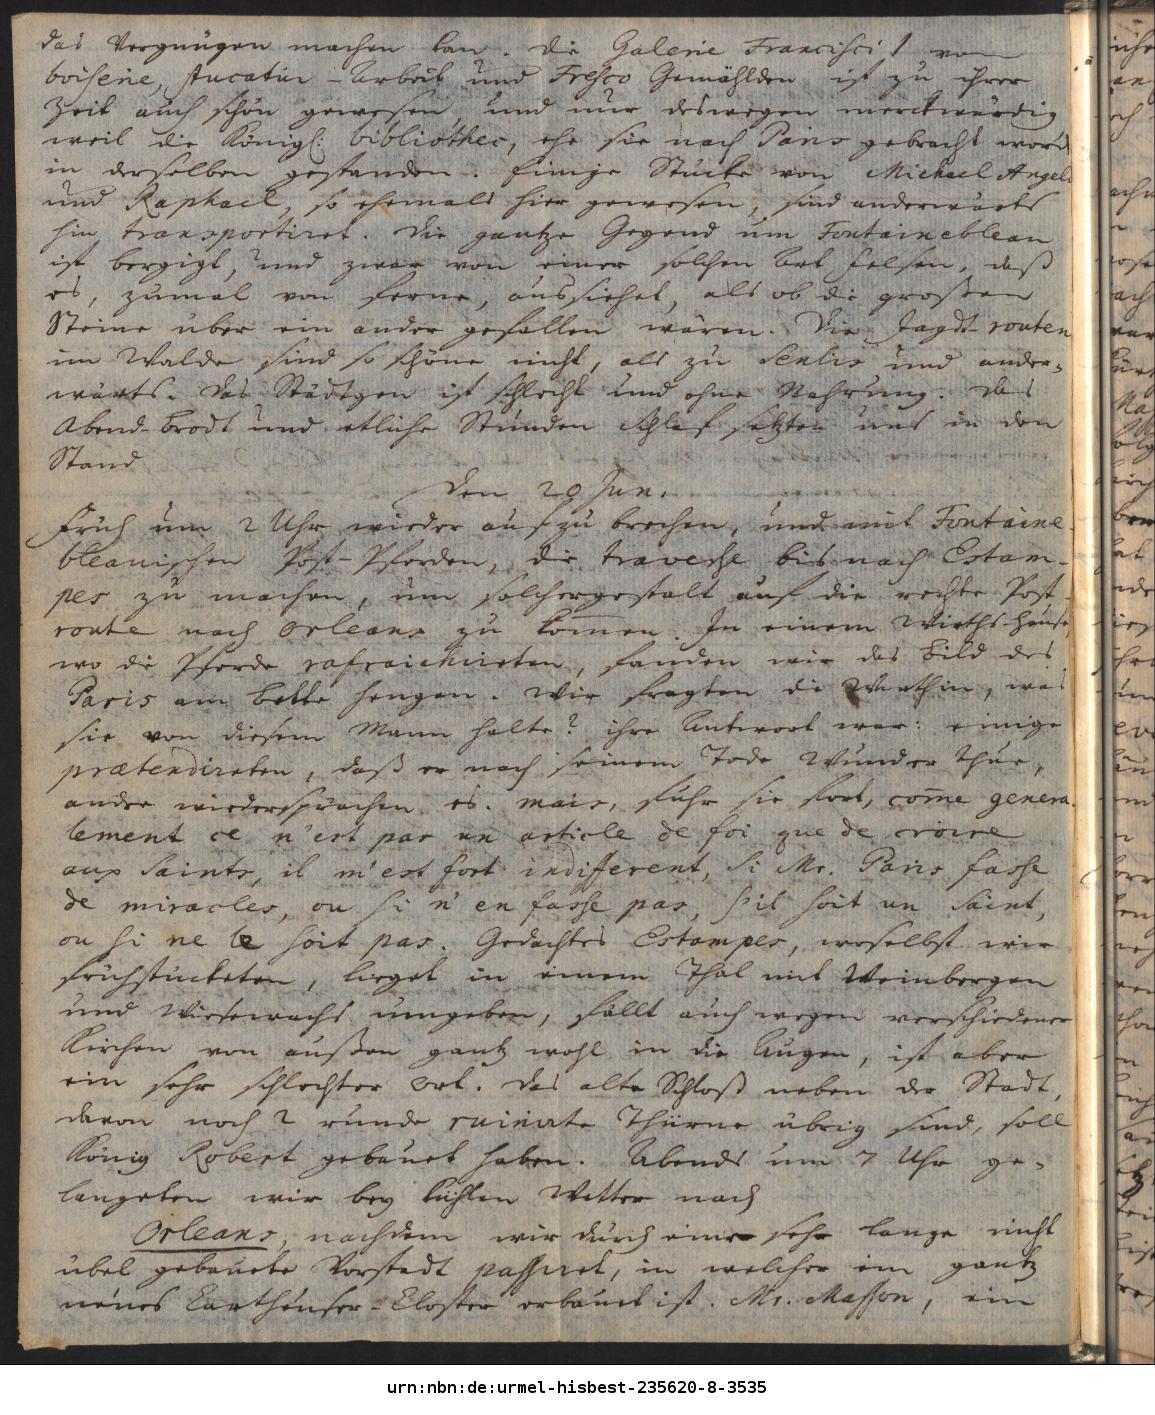 das Vergnügen machen kan. Die Galerie Francisci I von
boiserie, Stucatur-Arbeit und Fresco Gemählden ist zu ihrer
Zeit auch schön gewesen, und nur deswegen merckwürdig
weil die Königl: bibliothec, ehe sie nach Paris gebracht word
in derselben gestanden. Einige Stücke von Michael Angel
und Raphael, so ehemals hier gewesen, sind anderwärts
hin transportiret. Die gantze Gegend um Fontainebleau
ist bergigt, und zwar von einer solchen Art Felsen, daß
es, zumal von ferne, aussiehet, als ob die großen
Steine über ein ander gefallen wären. Die Jagdt-routen
im Walde sind so schöne nicht, als zu Senlis und ander-
wärts. Das Städtgen ist schlecht und ohne Nahrung. Das
Abend-brodt und etliche Stunden Schlaf setzten uns in den
Stand
Den 20 Jun.
Früh um 2 Uhr wieder aufzubrechen, und mit Fontaine-
bleauischen Post-Pferden, die traverse bis nach Estam-
pes zu machen, um solchergestalt auf die rechte Post-
route nach Orleans zu kom̄en. In einem Wirths-Hause,
wo die Pferde rafraichirten, fanden wir das Bild des
Paris am Bette hengen. Wir fragten die Wirthin, was
sie von diesem Mann halte? ihre Antwort war: einige
prætendireten, daß er nach seinem Tode Wunder thue,
andre widersprächen es. mais, fuhr sie fort, com̄e genera-
lement ce n'est pas un article de foi que de croire
aux Saints, il m'est fort indifferent, si Mr. Paris fasse
de miracles, ou si n'en fasse pas, s'il soit un Saint,
ou si ne le soit pas. Gedachtes Estampes, woselbst wir
frühstücketen, lieget in einem Thal mit Weinbergen
und Wiesewachs umgeben, fällt auch wegen verschiedener
Kirchen von außen gantz wohl in die Augen, ist aber
ein sehr schlechter Ort. Das alte Schloß neben der Stadt,
davon noch 2 runde ruinirte Thürme übrig sind, soll
König Robert gebauet haben. Abends um 7 Uhr ge-
langeten wir bey kühlen Wetter nach
Orleans, nachdem wir durch eine sehr lange nicht
übel gebauete Vorstadt passiret, in welcher ein gantz
neues Carthäuser-Closter erbauet ist. Mr. Masson, ein
urn:nbn:de:urmel-hisbest-235620-8-3535